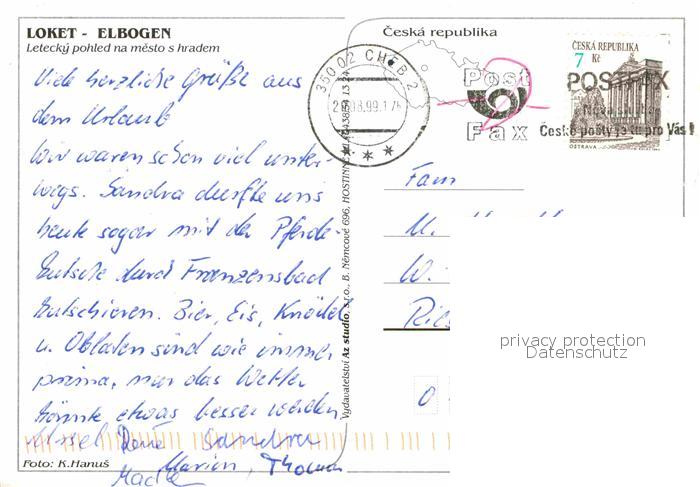 LOKET - ELBOGEN
Letecký pohled na město s hradem
Viele herzliche Grüße aus
dem Urlaub
Wir waren schon viel unter-
wegs. Sandra durfte uns
heute sogar mit der Pferde-
kutsche durch Franzensbad
kutschieren. Bier, Eis, Knödel
u. Oblaten sind wie immer
prima, nur das Wetter
könnte etwas besser werden
Ursel René Sandra
Marion, Thomas
Foto: K.Hanuš
Vydavatelství Az studio, s.r.o., B. Němcové 696, HOSTINNÉ
Česká republika
35002 CHEB 2
Post
Fax
ČESKÁ REPUBLIKA
7
Kč
POSTFAX
České pošty je tu pro Vás!
OSTRAVA
Fam
M.
W.
privacy protection
Datenschutz